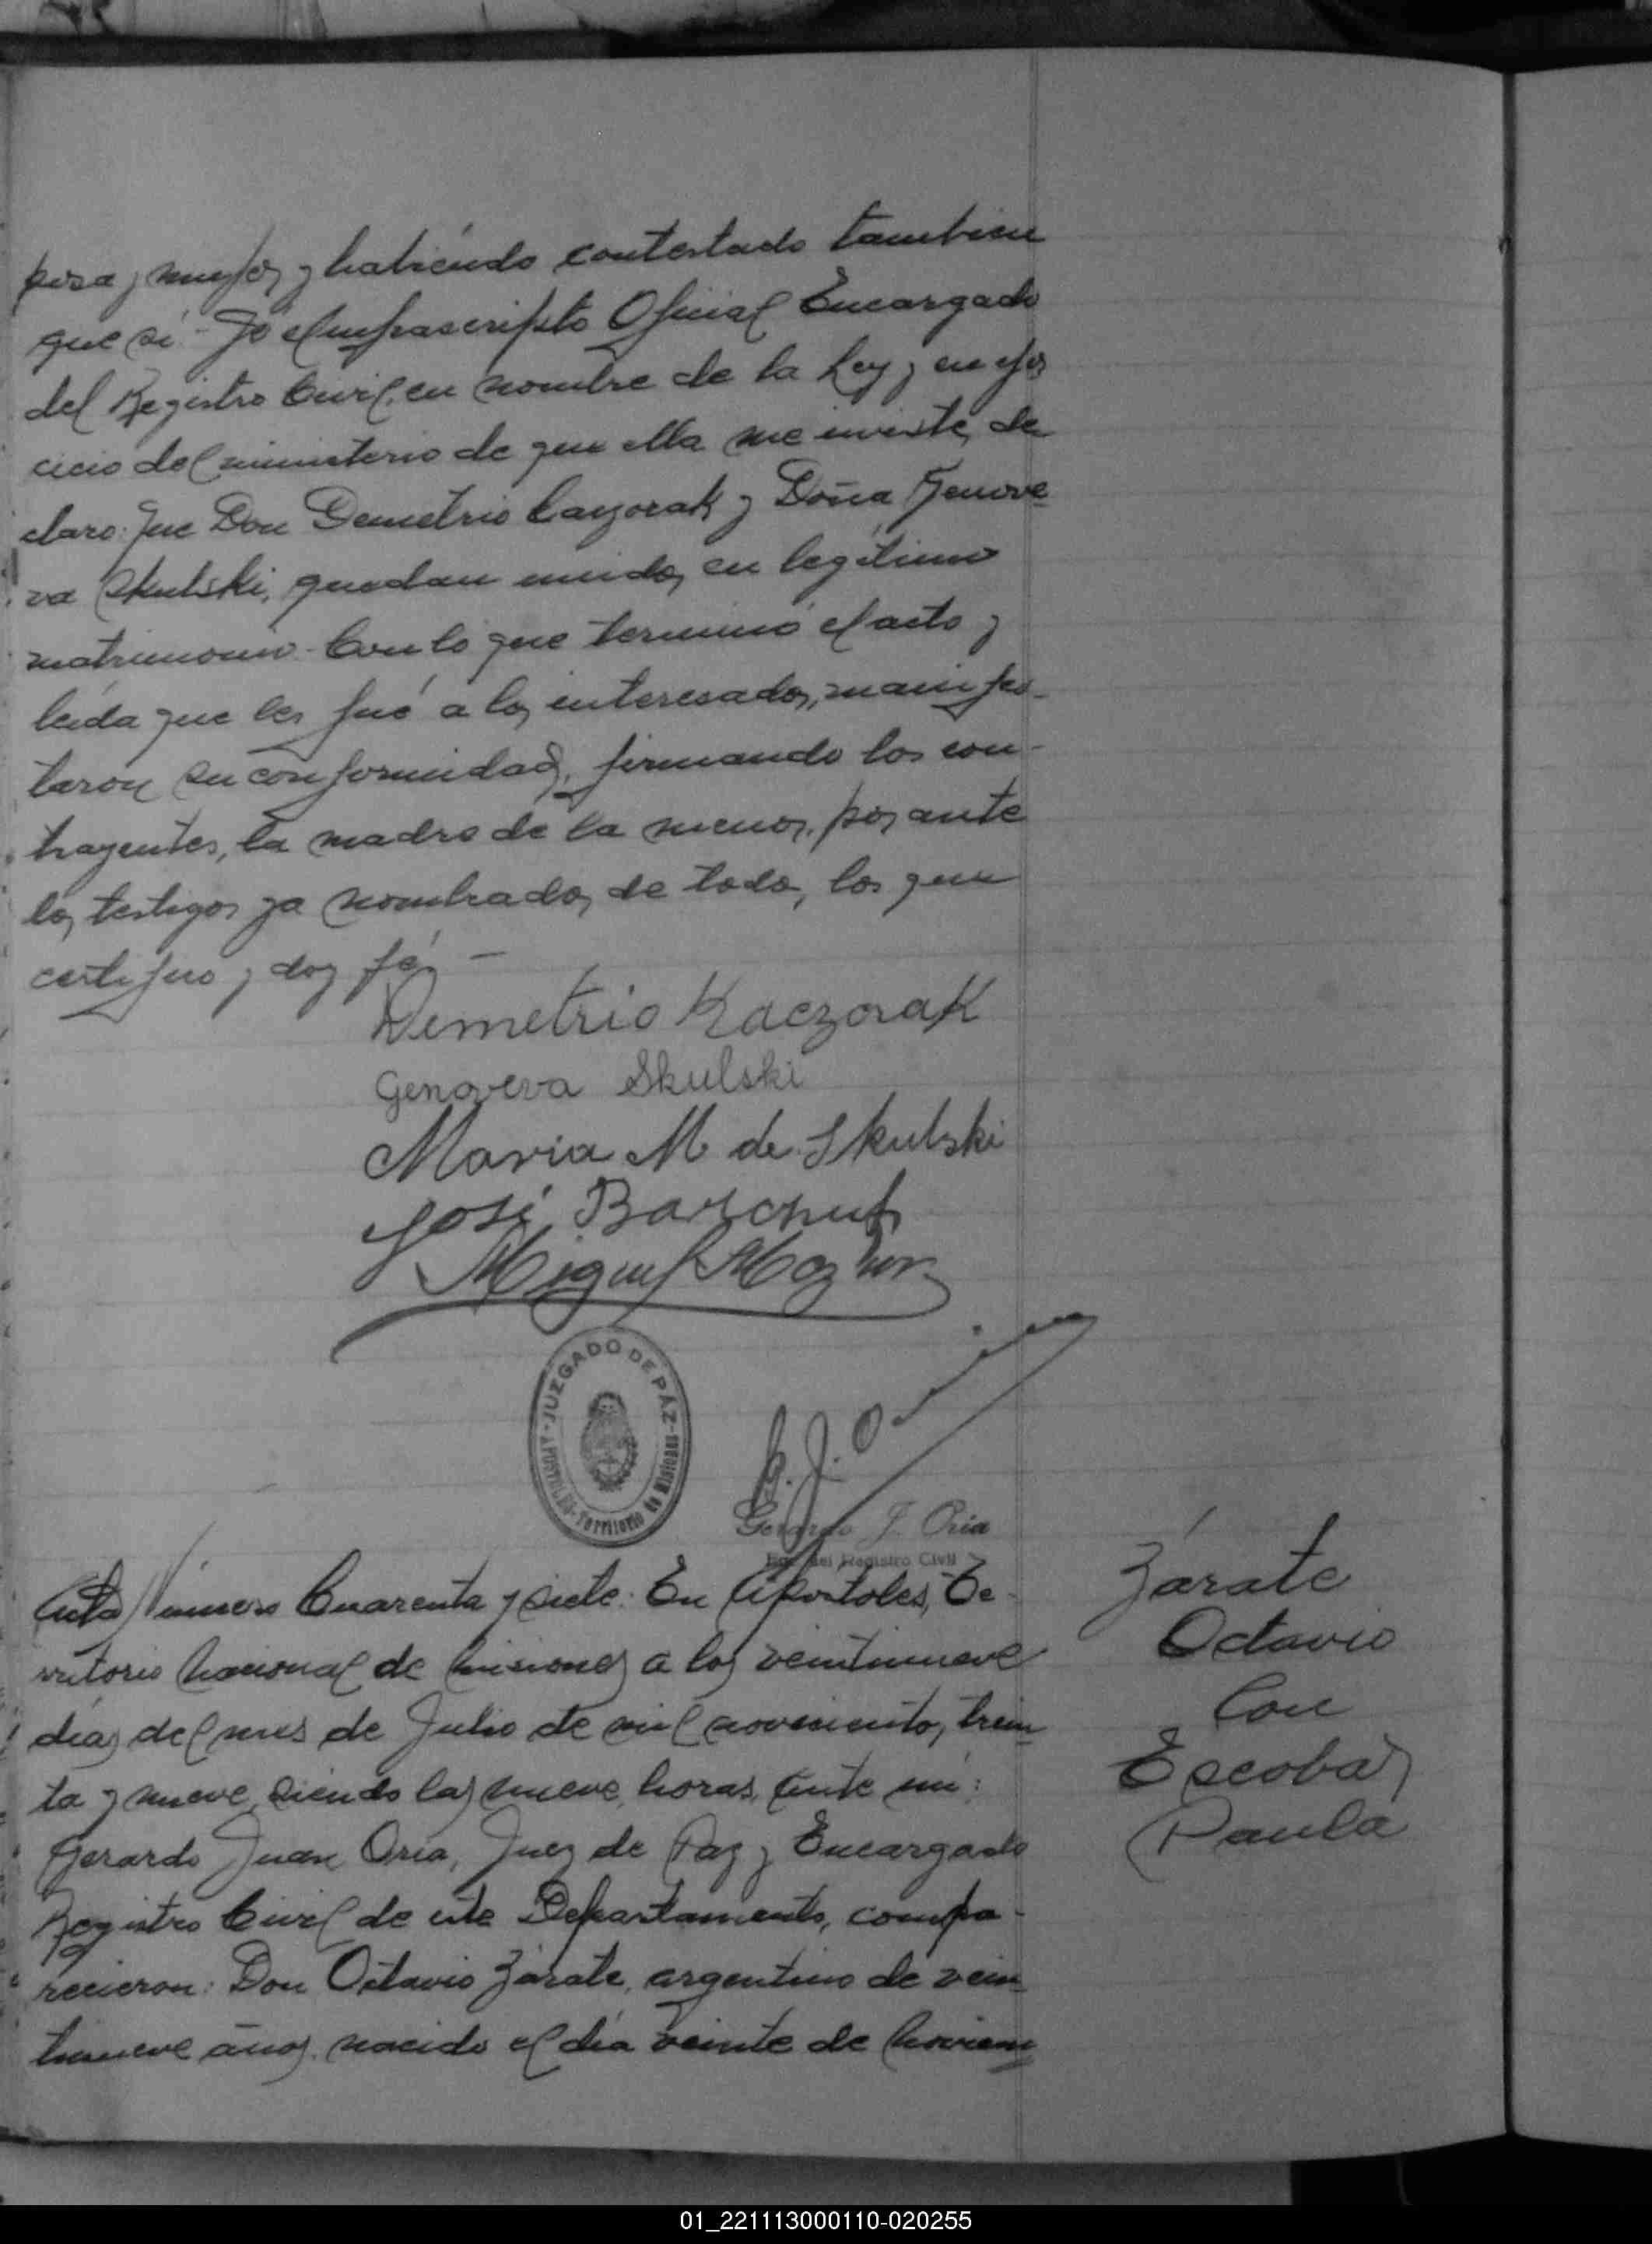 posa y mujer, y habiendo contestado tambien
que si - Yo el infrascripto Oficial Encargado
del Registro Civil, en nombre de la Ley y en ejer
cicio del ministerio de que ella me inviste, de
claro: Que Don Demetrio Cayorak y Doña Genove
va Skulski, quedan unidos en legítimo
matrimonio - Con lo que terminó el acto y
leída que les fué a los interesados, manifes-
taron su conformidad, firmando los con-
trayentes, la madre de la menor, por ante
los testigos ya nombrados, de todo, los que
certifico y doy fé, -
Demetrio Kaczorak
Genoveva Skulski
Maria M de Skulski
José
Miguel
JUZGADO DE PAZ - APOSTOLES - Territorio de Misiones
G. J. Oria
Gerardo J. Oria
Enc. del Registro Civil
Zárate
Octavio
Con
Escobar
Paula
Acta Número Cuarenta y siete: En Apostoles, Te-
rritorio Nacional de Misiones a los veintinueve
días del mes de Julio de mil novecientos trein
ta y nueve, siendo las nueve horas, ante mi:
Gerardo Juan Oria, Juez de Paz y Encargado
Registro Civil de este Departamento, compa-
recieron: Don Octavio Zárate, argentino de vein
tinueve años, nacido el día veinte de Noviem
01_221113000110-020255